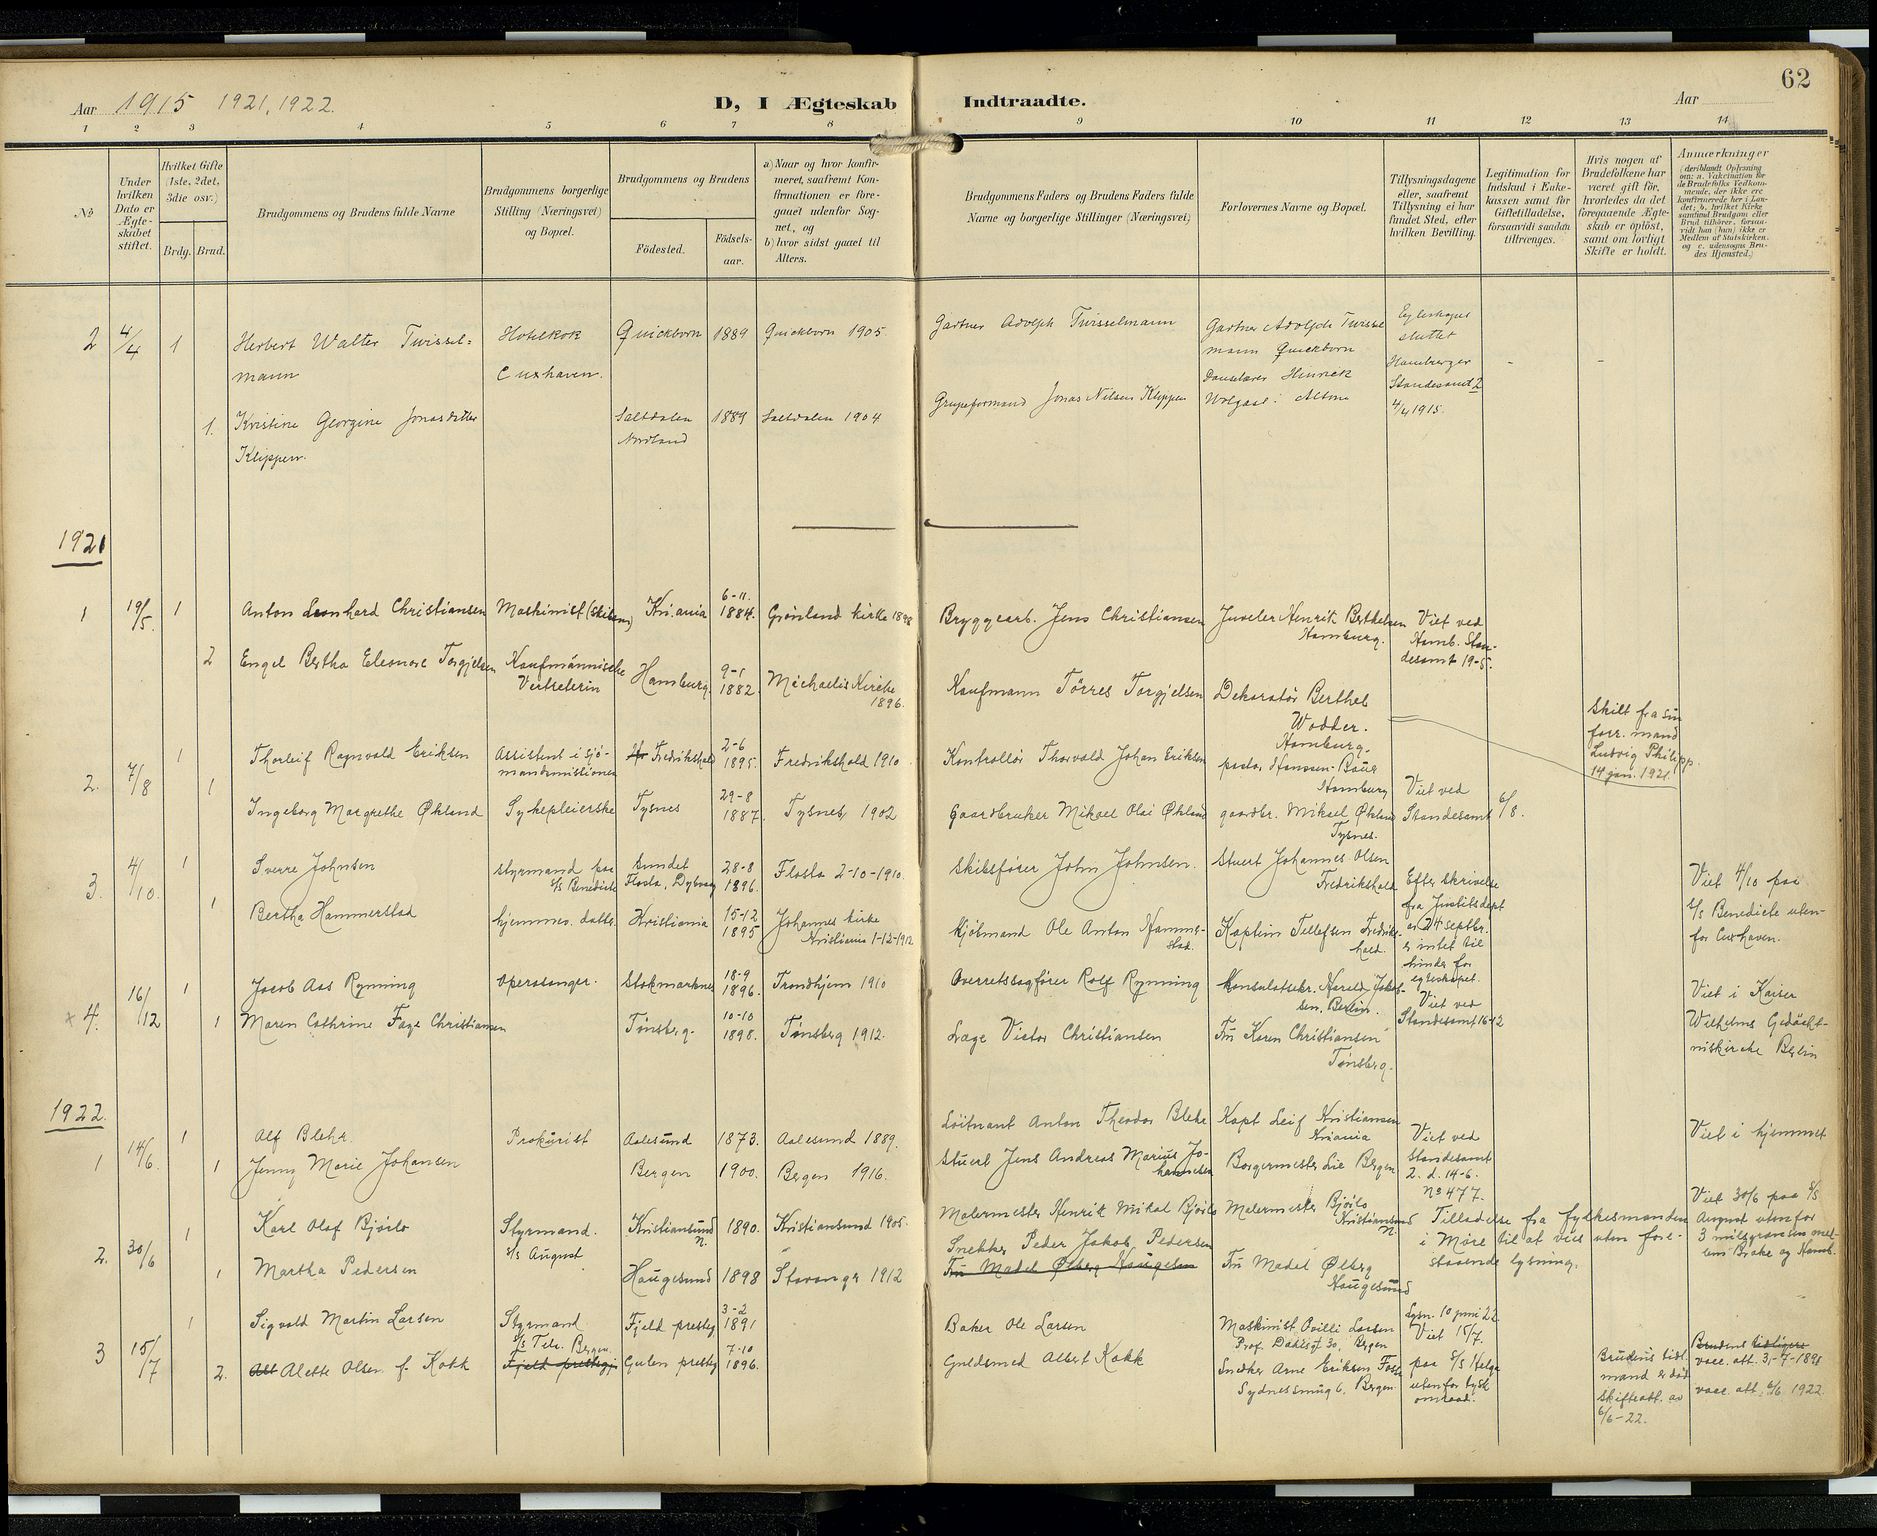 Aar 1915 1921, 1922.
D, I Ægteskab Indtraadte.
Aar
62
1 2 3 4 5 6 7 8 9 10 11 12 13 14
No
Under hvilken Dato er Ægte-skabet stiftet.
Hvilket Gifte (1ste, 2det, 3die osv.)
Brdg. Brud.
Brudgommens og Brudens fulde Navne
Brudgommens borgerlige Stilling (Næringsvei) og Bopæl.
Brudgommens og Brudens
Fødested.
Fødsels-aar.
a) Naar og hvor konfir-
meret, saafremt Kon-
firmationen er fore-
gaaet udenfor Sog-
net, og
b) hvor sidst gaaet til
Alters.
Brudgommens Faders og Brudens Faders fulde
Navne og borgerlige Stillinger (Næringsvei)
Forlovernes Navne og Bopæl.
Tillysningsdagene
eller, saafremt
Tillysning ei har
fundet Sted, efter
hvilken Bevilling.
Legitimation for
Indskud i Enke-
kassen samt for
Giftetilladelse,
forsaavidt saadan
tiltrænges.
Hvis nogen af
Brudefolkene har
været gift før,
hvorledes da det
foregaaende Ægte-
skab er opløst,
samt om lovligt
Skifte er holdt.
Anmærkninger
(deriblandt Oplysning
om: a. Vakcination for
de Brudefolks Vedkom-
mende, der ikke ere
konfirmerede her i Lan-
det; b. hvilket Kirke
samfund Brudgom eller
Brud tilhører, forsaa-
vidt han (hun) ikke er
Medlem af Statskirken,
og c. udensogns Bru-
des Hjemsted.)
2 4/4 1 Herbert Walter Twissel=
mann
Hotelkok
Cuxhaven.
Quickborn 1889 Quickborn 1905
Gartner Adolph Twisselmann
Gartner Adolph Twissel
mann Quickborn
Hinrick
Altona
Egteskapet
sluttet
Hamburger
Standesamt 2
4/4 1915.
- -
1. Kristine Georgine Jonasdatter
Klippen.
Saltdalen
Nordland
1889 Saltdalen 1904
Grubeformand Jonas Nilsen Klippen
1921
1 19/5. 1 Anton Leonhard Christiansen
Maskinist (Skibs)
Kr.ania 6-11. 1884. Grønland kirke 1898
Bryggearb. Jens Christiansen
Juveler Henrik Berthelsen
Hamburg.
Viet ved
Hamb. Stan-
desamt 19-5.
2 Engel Bertha Eleonore Torgjelsen
Kaufmännische
Vertreterin
Hamburg. 9-1 1882. Michaelis Kirche
1896.
Kaufmann Tørres Torgjelsen
Dekoratør Berthel
Wodder.
Hamburg.
Skilt fra sin
forr. mand
Ludvig Philipp.
14 jan. 1921.
2. 7/8 1 Thorleif Ragnvald Eriksen
Assistent i sjø-
mandsmissionen
Fredrikshald 2-6 1895. Fredrikshald 1910
Kontrollør Thorvald Johan Eriksen
pastor Hanssen-Bauer
Hamburg
Viet ved
Standesamt 6/8.
1 Ingeborg Margrethe Økland
Sykepleierske
Tysnes 29-8 1887. Tysnes 1902
Gaardbruker Mikael Olai Økland
gaardbr. Mikael Økland
Tysnes.
3. 4/10. 1 Sverre Johnsen
styrmand paa
s/s Benedicte
Sundet
Flosta, Dybvaag
28-8 1896. Flosta 2-10-1910.
Skibsfører John Johnsen.
Stuert Johannes Olsen
Fredrikshald
Efter skrivelse
fra Justitsdept
av 24 septbr.
er intet til
hinder for
egteskapet.
Viet 4/10 paa
s/s Benedicte uten-
for Cuxhaven.
1 Bertha Hammerstad
hjemmev. datter
Kristiania 15-12 1895 Johannes kirke
Kristiania 1-12-1912
Kjøbmand Ole Anton Hammer-
stad.
Kaptein Tellefsen Fredriks-
hald.
x 4. 16/12 1 Jacob Aas Rynning
Operasanger.
Stokmarknes 18-9 1896. Trondhjem 1910
Overretssagfører Rolf Rynning
Konsulatsekr. Harald Jakob-
sen, Berlin.
Viet ved
Standesamt 16-12
Viet i Kaiser
Wilhelms Gedächt-
niskirche Berlin
1 Maren Cathrine Faye Christiansen
Tønsberg. 10-10 1898. Tønsberg 1912.
Læge Victor Christiansen
Fru Karen Christiansen
Tønsberg.
1922.
1 14/6. 1 Alf Blehr.
Prokurist
Aalesund 1873. Aalesund 1889.
Løitnant Anton Theodor Blehr
Kapt Leif Kristiansen
Kr.ania
Viet ved
Standesamt
2. d. 14-6.
No 477.
Viet i hjemmet
1 Jenny Marie Johansen
Bergen 1900. Bergen 1916.
Stuert Jens Andreas Marius Jo-
hannesen
Borgermester Lie Bergen
2. 30/6 1 Karl Olaf Bjørlo
Styrmand.
s/s August
Kristiansund
N.
1890. Kristiansund 1905.
Malermester Henrik Mikal Bjørlo
Malermester Bjørlo
Kristiansund
N.
Tilladelse fra fylkesmanden
i Møre til at vies uten fore-
staaende lysning.
Viet 30/6 paa s/s
August utenfor
3 milsgrænsen mel-
lem Brake og Hamb.
1 Martha Pedersen
Haugesund 1898 Stavanger 1912
Snekker Peder Jakob Pedersen
Fru Madel Ølberg Haugesun
Fru Madel Ølberg
Haugesund
3 15/7 1 Sigvald Martin Larsen
Styrmand
Bergen.
Fjeld prestegj 3-2 1891
Baker Ole Larsen
Maskinist Ovilli Larsen
Prof. Dahlsgt 30, Bergen
Lysn. 10 juni 22
Viet 15/7.
paa s/s Helga
utenfor tysk
omraad.
2. Alette Olsen f. Kokk
Fjeld prestegj
Gulen prestg 7-10 1896.
Guldsmed Albert Kokk
Snedker Arne Eriksen Foss
Sydnessmug 6, Bergen.
Brudens tidl.
mand er død
skifteatt. av
6/6-22.
Brudens tidligere
vacc. att. 3-7-1891
vacc. att. 6/6 1922.